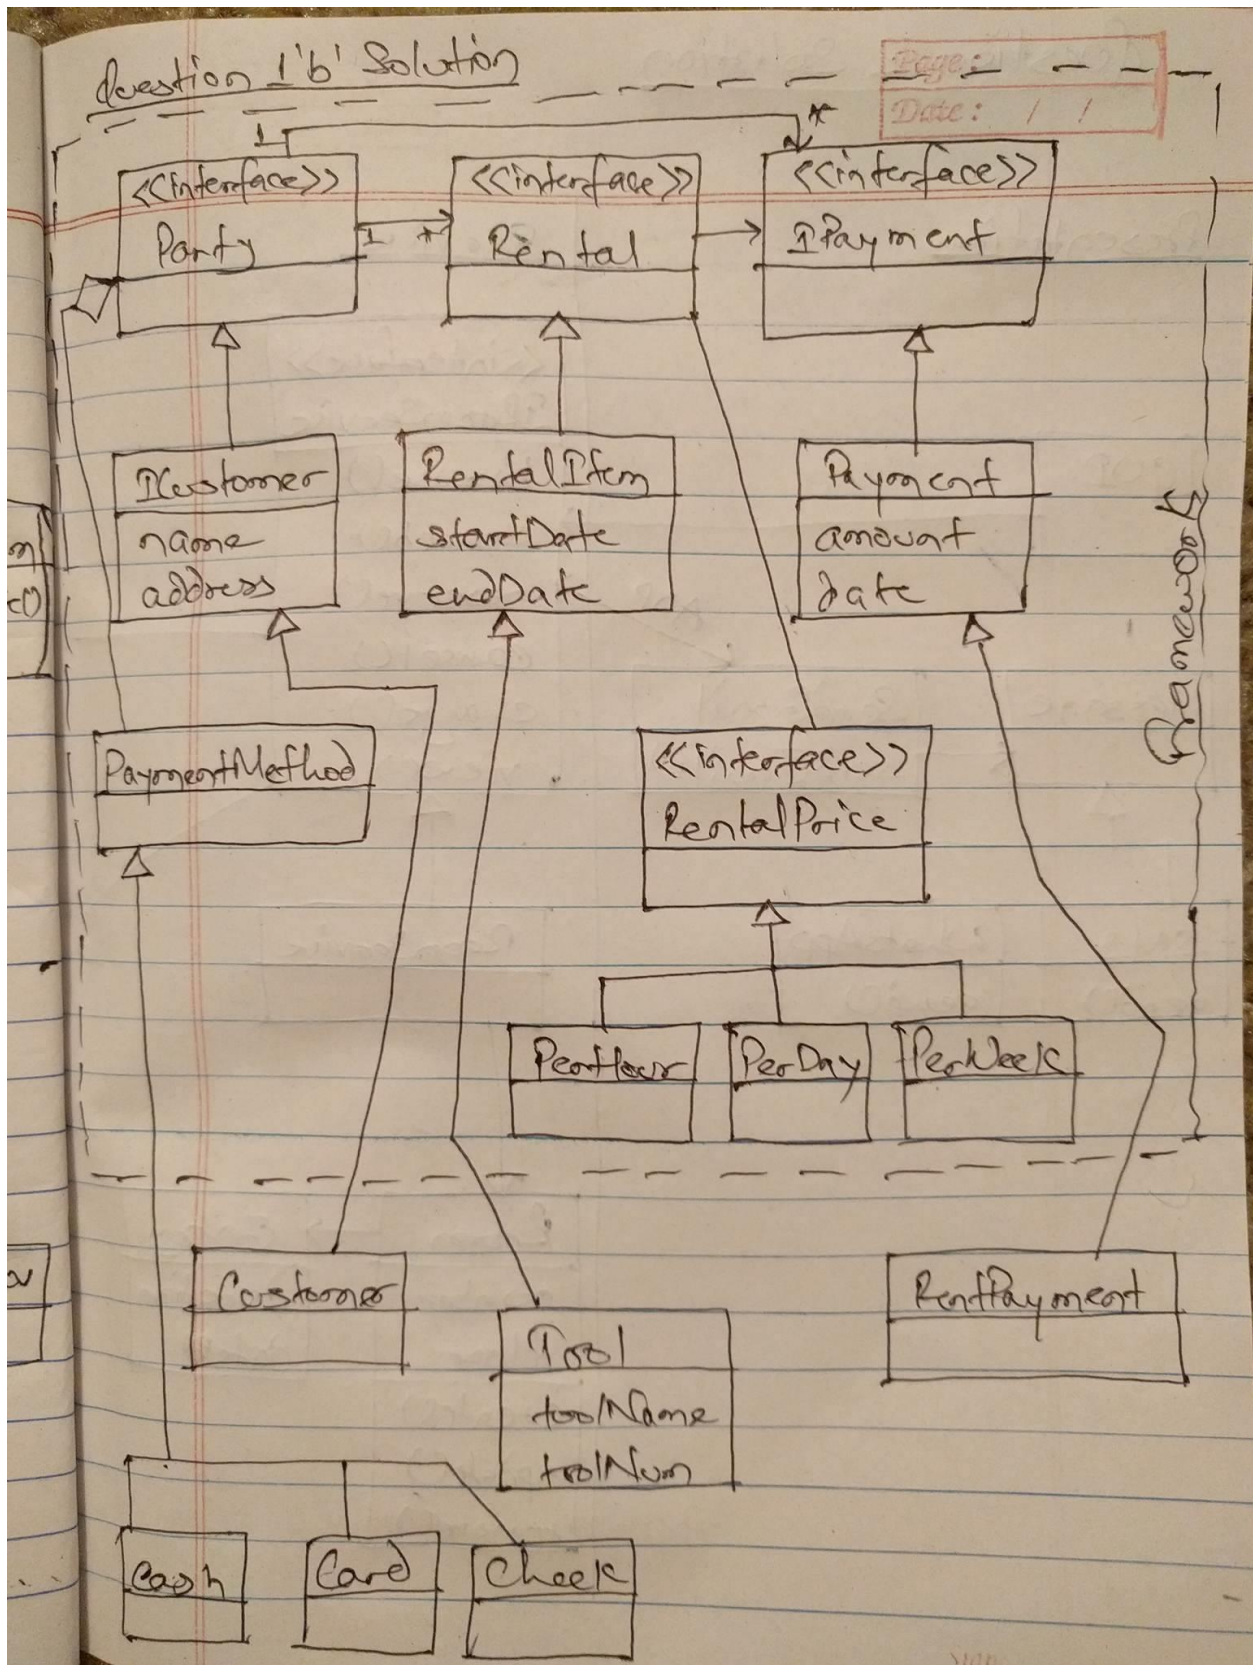 Question 1'b' Solution
Page:
Date: / /
1
*
<<interface>>
Party
1 *
<<interface>>
Rental
<<interface>>
IPayment
ICustomer
name
address
RentalItem
startDate
endDate
Payment
amount
date
Framework
PaymentMethod
<<interface>>
RentalPrice
PerHour
PerDay
PerWeek
Customer
Tool
toolName
toolNum
RentPayment
Cash
Card
Check